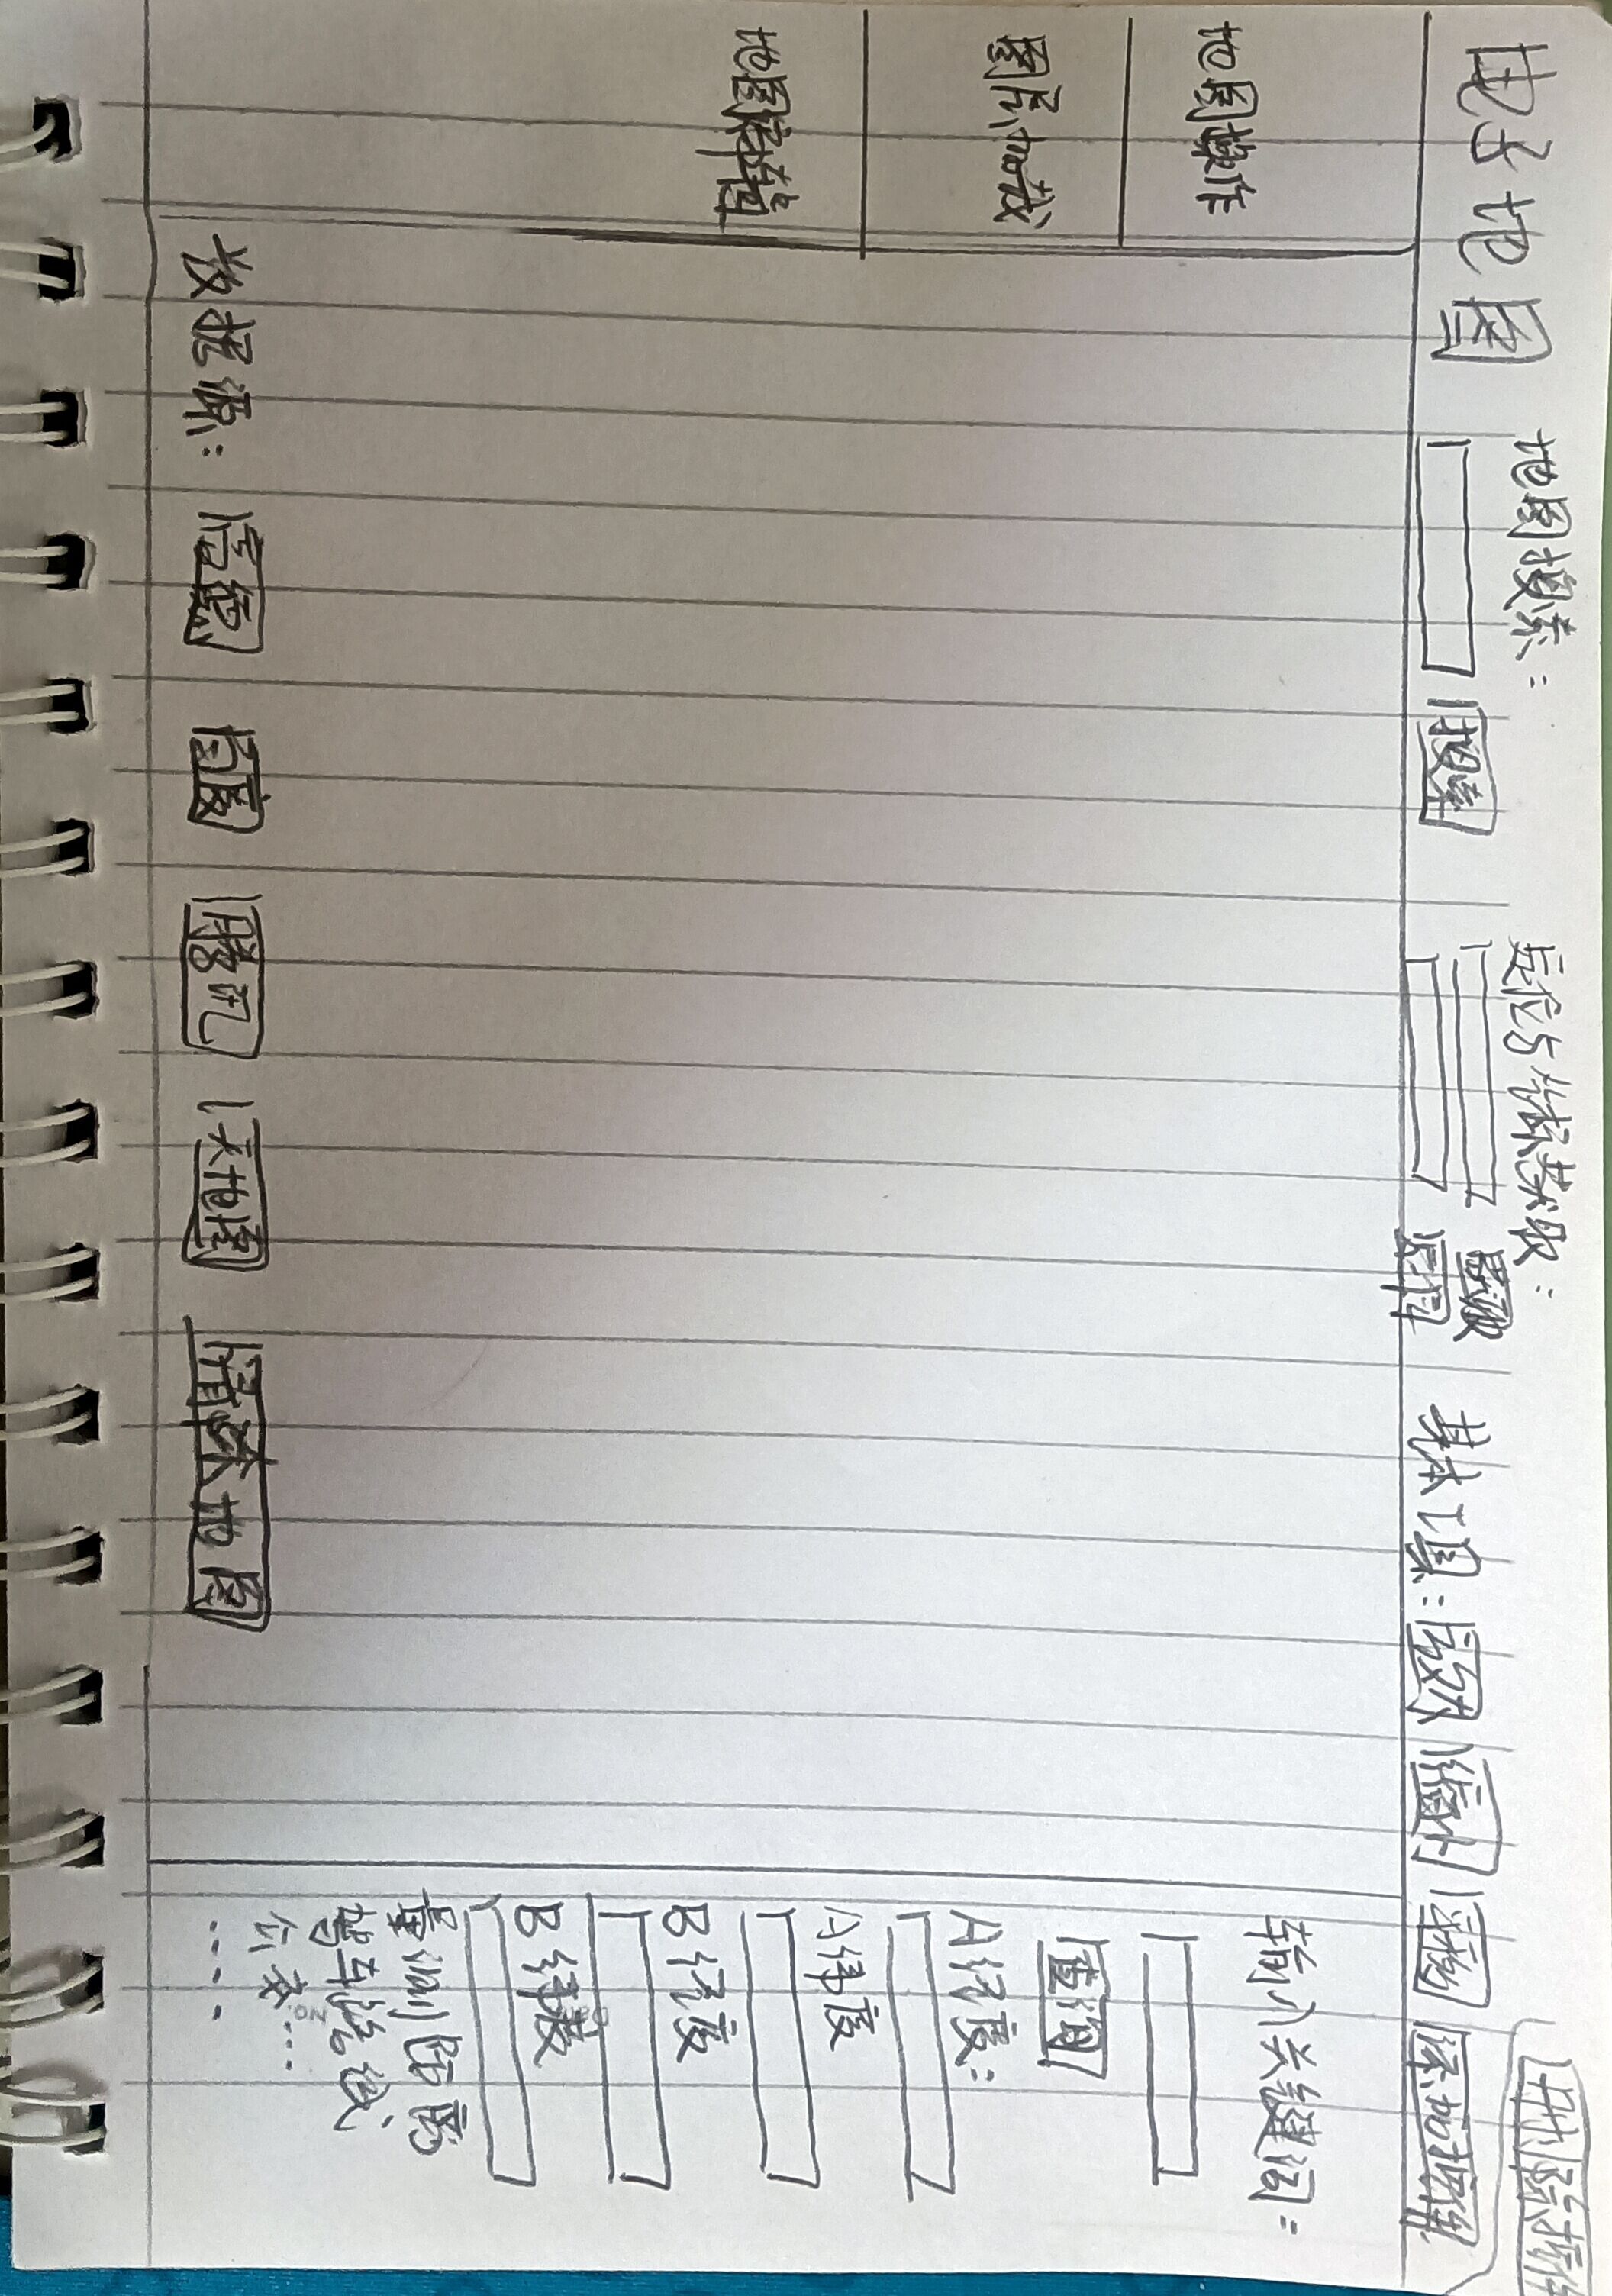 电子地图
地图搜索:
搜索
定位与坐标获取:
获取
基本工具: 放大 缩小 平移 添加控件
删除控件
地图操作
图层加载
地图编辑
输入关键词:
查询
A经度:
A纬度
B经度
B纬度
量测距离
驾车路线
公交…
....
数据源: 高德 百度 腾讯 天地图 清除地图